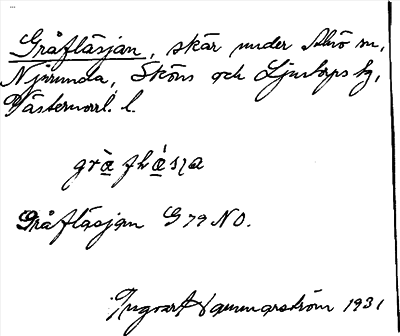 Gråfläsjan, skär under Alnö sn,
Njurunda, Sköns och Ljustorps tg,
Västernorrl. l.
Gråfläsjan G 79 NO.
Ingvart Hammarström 1931